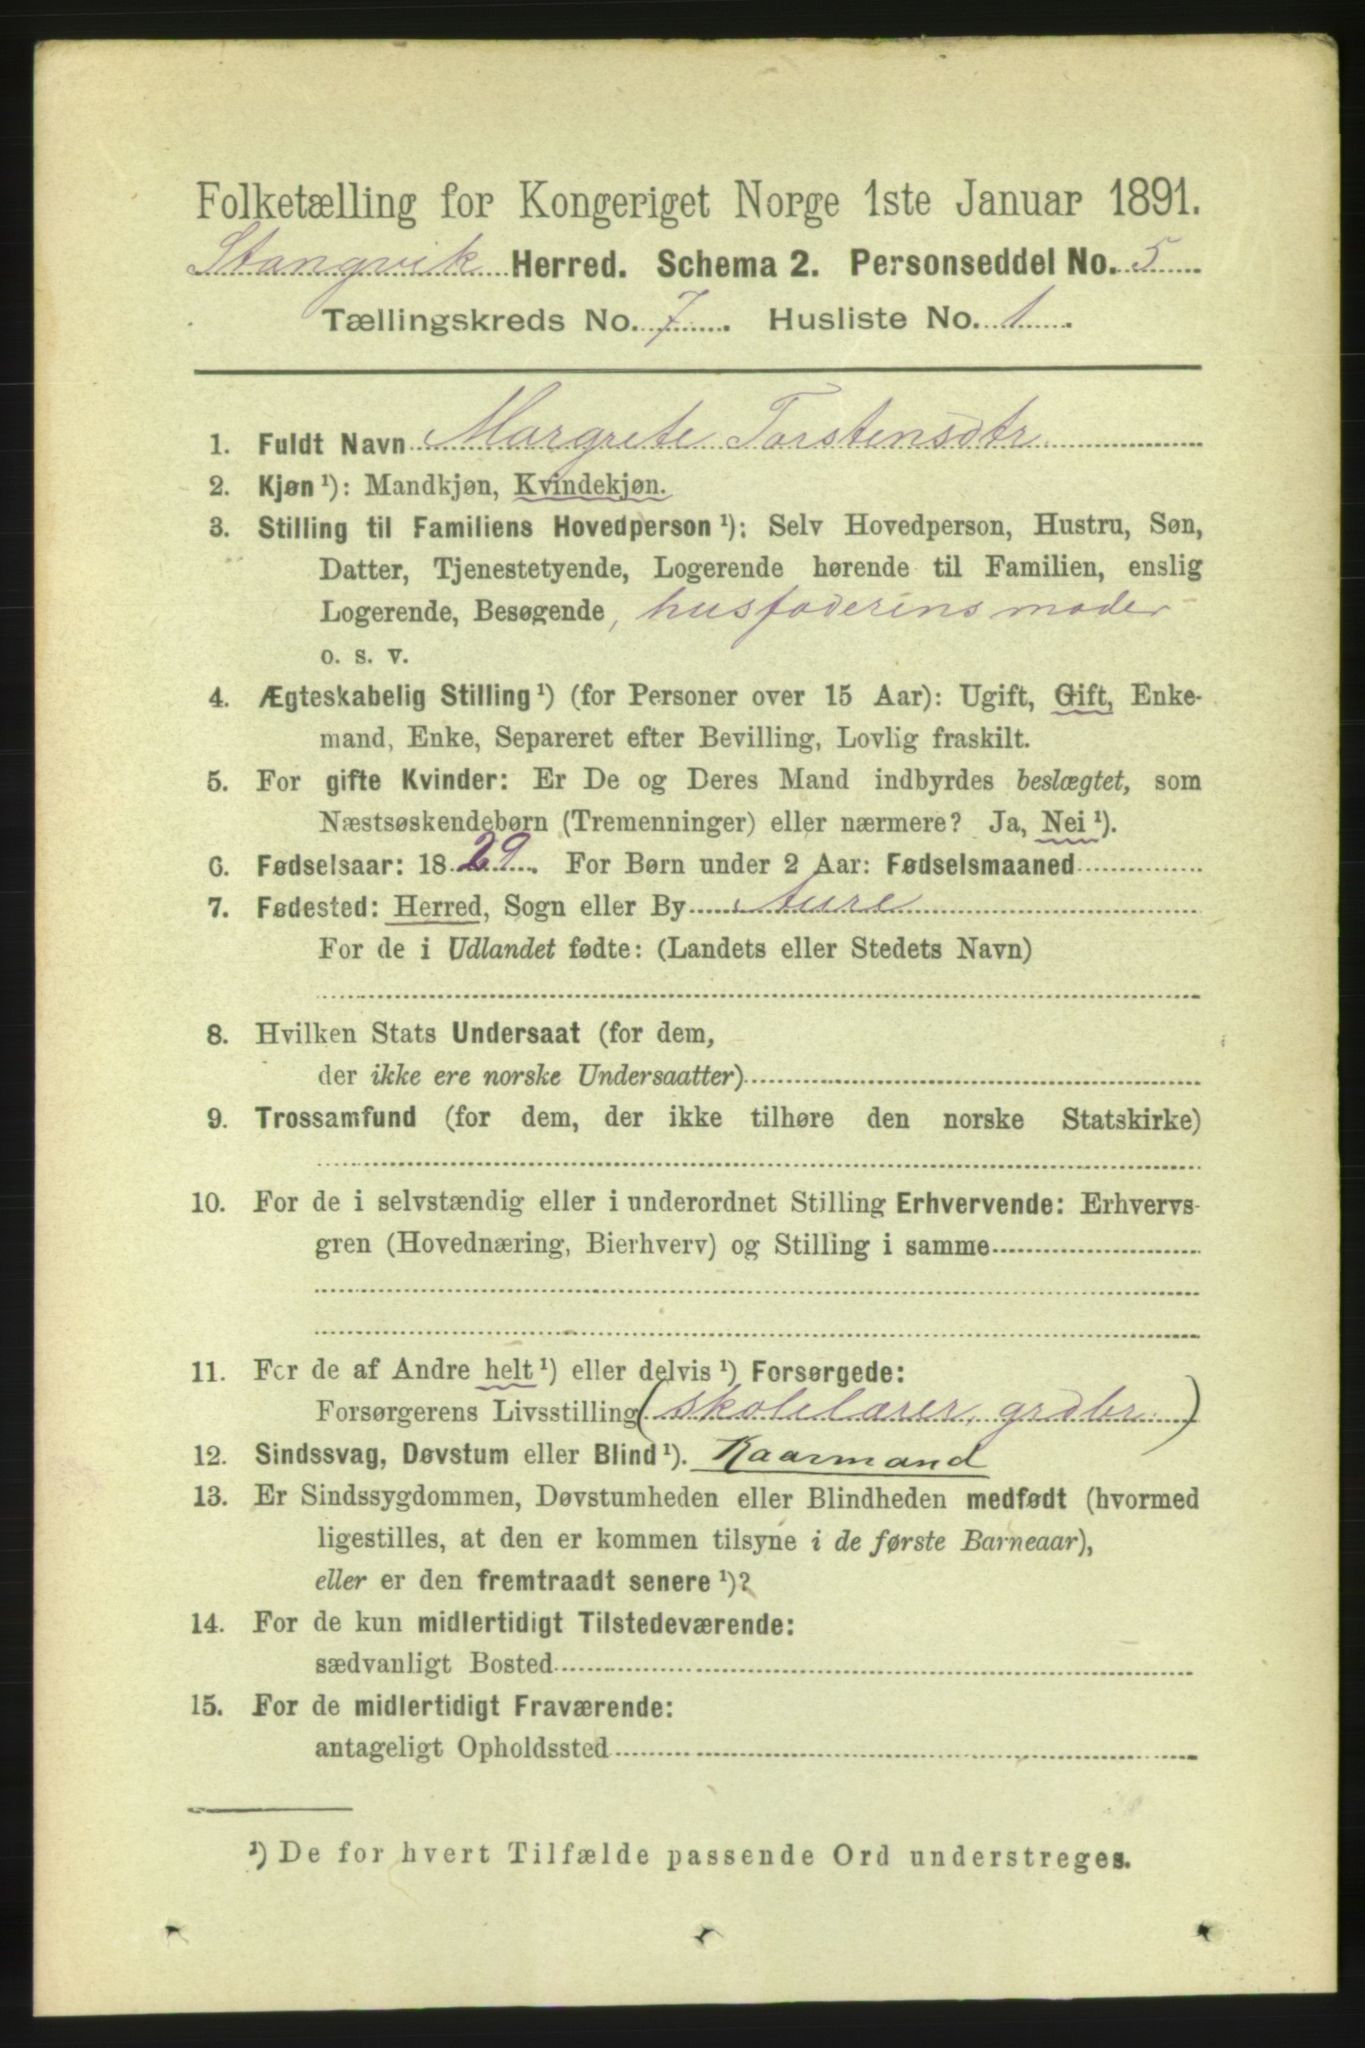 Folketælling for Kongeriget Norge 1ste Januar 1891.
Stangvik Herred. Schema 2. Personseddel No. 5
Tællingskreds No. 7. Husliste No. 1.
1. Fuldt Navn Margrete Torstensdtr
2. Kjøn¹): Mandkjøn, Kvindekjøn.
3. Stilling til Familiens Hovedperson¹): Selv Hovedperson, Hustru, Søn,
Datter, Tjenestetyende, Logerende hørende til Familien, enslig
Logerende, Besøgende, husfaderens moder
o. s. v.
4. Ægteskabelig Stilling¹) (for Personer over 15 Aar): Ugift, Gift, Enke-
mand, Enke, Separeret efter Bevilling, Lovlig fraskilt.
5. For gifte Kvinder: Er De og Deres Mand indbyrdes beslægtet, som
Næstsøskendebørn (Tremenninger) eller nærmere? Ja, Nei¹).
6. Fødselsaar: 1829. For Børn under 2 Aar: Fødselsmaaned
7. Fødested: Herred, Sogn eller By Aure
For de i Udlandet fødte: (Landets eller Stedets Navn)
8. Hvilken Stats Undersaat (for dem,
der ikke ere norske Undersaatter)
9. Trossamfund (for dem, der ikke tilhøre den norske Statskirke)
10. For de i selvstændig eller i underordnet Stilling Erhvervende: Erhvervs-
gren (Hovednæring, Bierhverv) og Stilling i samme
11. For de af Andre helt¹) eller delvis¹) Forsørgede:
Forsørgerens Livsstilling (skolelærer, grdbr.)
12. Sindssvag, Døvstum eller Blind¹). Kaarmand
13. Er Sindssygdommen, Døvstumheden eller Blindheden medfødt (hvormed
ligestilles, at den er kommen tilsyne i de første Barneaar),
eller er den fremtraadt senere¹)?
14. For de kun midlertidigt Tilstedeværende:
sædvanligt Bosted
15. For de midlertidigt Fraværende:
antageligt Opholdssted
¹) De for hvert Tilfælde passende Ord understreges.